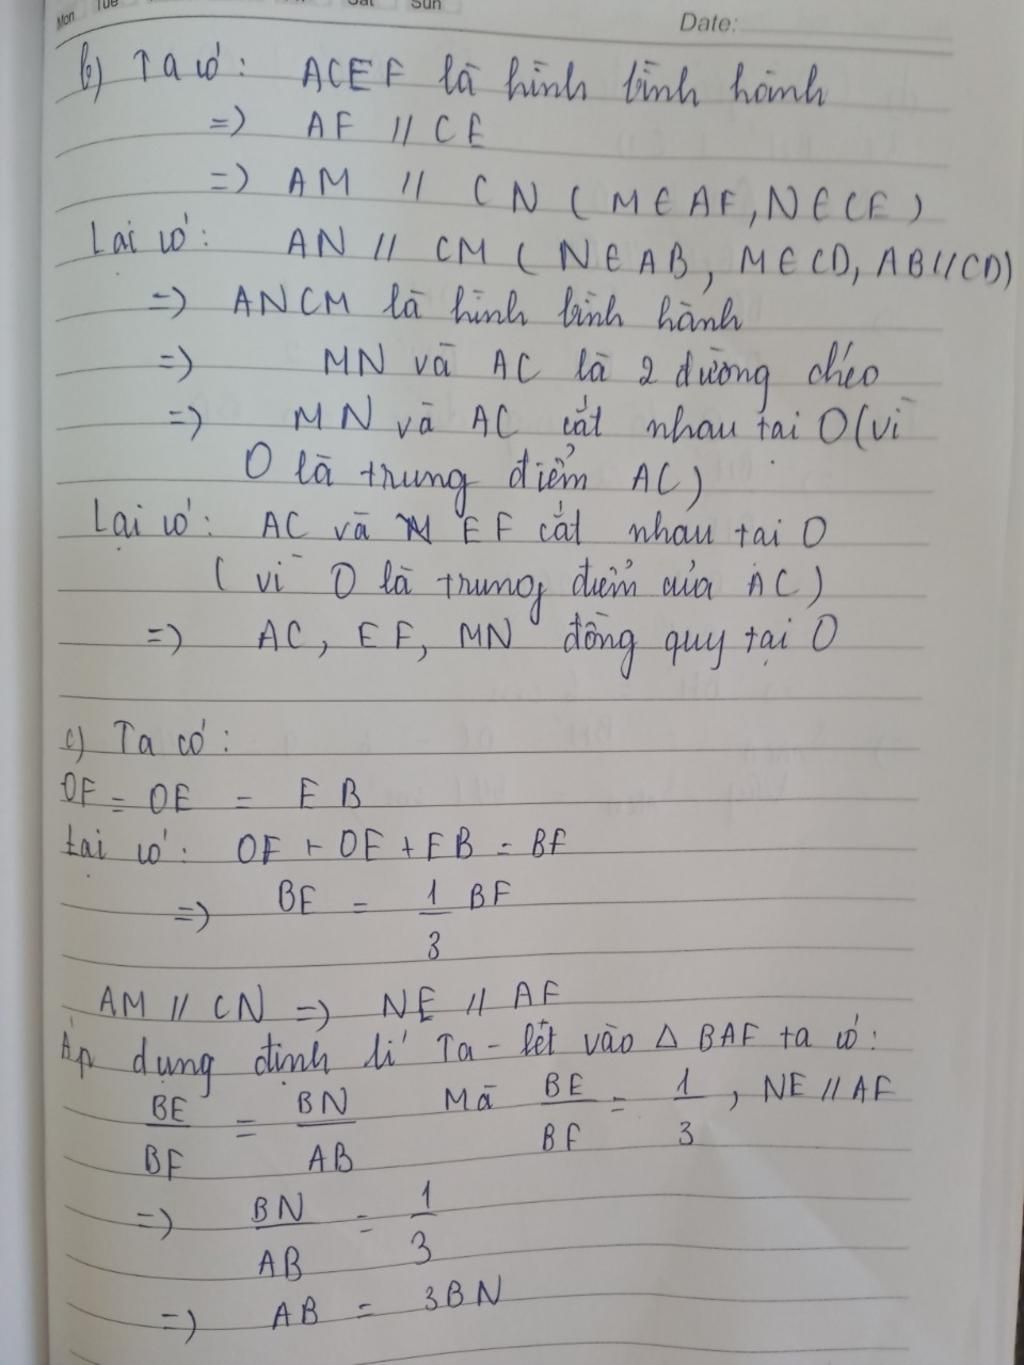 Mon Tue Sat Sun
Date:
b) Ta có: ACEF là hình bình hành
=> AF // CE
=> AM // CN ( M ∈ AF, N ∈ CE )
Lại có: AN // CM ( N ∈ AB, M ∈ CD, AB // CD)
=> ANCM là hình bình hành
=> MN và AC là 2 đường chéo
=> MN và AC cắt nhau tại O (vì
O là trung điểm AC)
Lại có: AC và EF cắt nhau tại O
( vì O là trung điểm của AC)
=> AC, EF, MN đồng quy tại O
c) Ta có:
OF = OE = EB
Lại có: OF + OE + EB = BF
=> BE = 1/3 BF
AM // CN => NE // AF
Áp dụng định lí Ta-lét vào Δ BAF ta có:
BE/BF = BN/AB Mà BE/BF = 1/3, NE // AF
=> BN/AB = 1/3
=> AB = 3BN